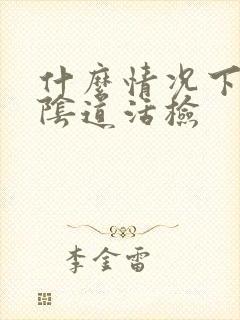 什麼情况下
陰道活檢
李金雷